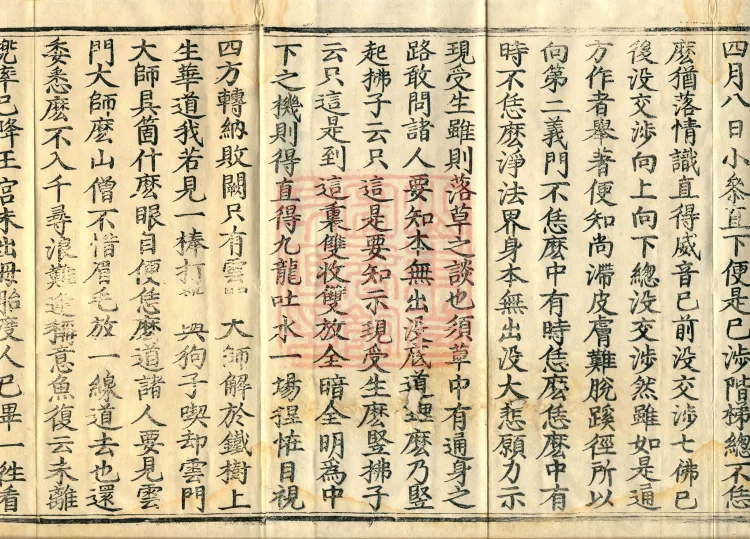 四月八日小參直下便是已涉階梯總不恁
麽猶落情識直得威音已前没交涉七佛已
後没交涉向上向下總没交涉然雖如是通
方作者舉著便知尚滯皮膚難脫蹊徑所以
向第二義門不恁麽中有時恁麽恁麽中有
時不恁麽淨法界身本無出没大悲願力示
現受生雖則落草之談也須草中有通身之
路敢問諸人要知本無出没底道理麽乃竪
起拂子云只這是要知示現受生麽竪拂子
云只這是到這裏雙收雙放全暗全明爲中
下之機則得直得九龍吐水一場捏恠目視
四方轉納敗闕只有雲門大師解於鐵樹上
生華道我若見一棒打 與狗子喫却雲門
大師具箇什麽眼目便恁麽道諸人要見雲
門大師麽山僧不惜眉毛放一線道去也還
委悉麽不入千尋浪難逢稱意魚復云未離
兜率已降王宮未出母胎度人已畢一徃看